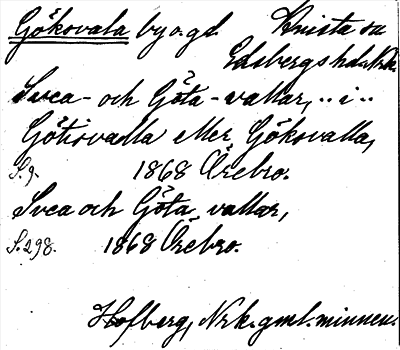 Göksvala by o. gd. Knista sn
Edsbergs hd. Nrk.
Svea- och Göta-vallar, ,, i ,,
Götisvalla eller Göksvalla,
S. 9. 1868 Örebro.
Svea och Göta vallar,
S. 298. 1868 Örebro.
Hofberg, Nrk. gml. minnen.